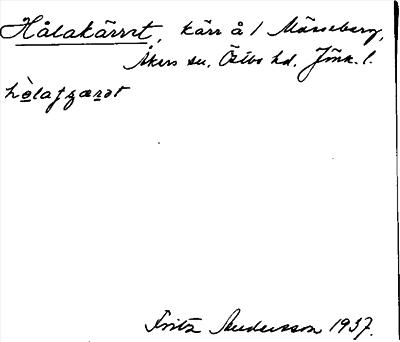 Hålakärret, kärr å 1 Mårseberg,
Åkers sn, Östbo hd. Jönk. l.
Fritz Andersson 1937.